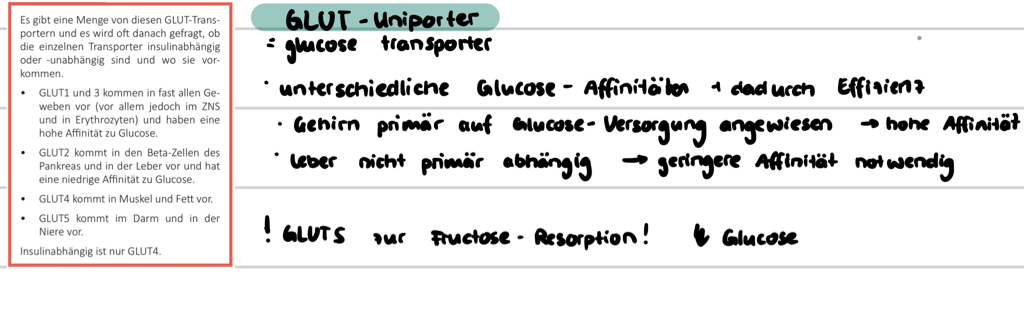 Es gibt eine Menge von diesen GLUT-Trans-
portern und es wird oft danach gefragt, ob
die einzelnen Transporter insulinabhängig
oder -unabhängig sind und wo sie vor-
kommen.
• GLUT1 und 3 kommen in fast allen Ge-
weben vor (vor allem jedoch im ZNS
und in Erythrozyten) und haben eine
hohe Affinität zu Glucose.
• GLUT2 kommt in den Beta-Zellen des
Pankreas und in der Leber vor und hat
eine niedrige Affinität zu Glucose.
• GLUT4 kommt in Muskel und Fett vor.
• GLUT5 kommt im Darm und in der
Niere vor.
Insulinabhängig ist nur GLUT4.
GLUT - Uniporter
= glucose transporter
· unterschiedliche Glucose - Affinitäten + dadurch Effizienz
· Gehirn primär auf Glucose- Versorgung angewiesen → hohe Affinität
· Leber nicht primär abhängig → geringere Affinität notwendig
! GLUT5 zur Fructose - Resorption! ↯ Glucose